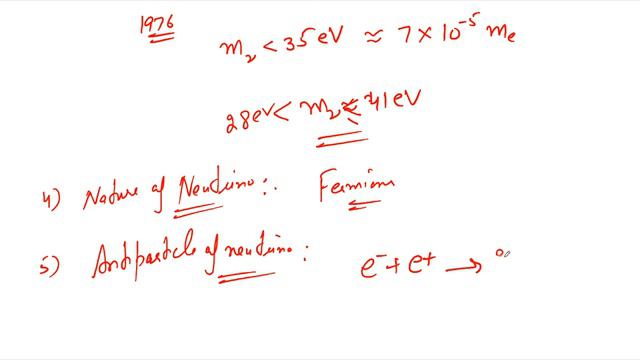 1976
m₂ < 35 eV ≈ 7 × 10⁻⁵ mₑ
28 eV < m₂ < 41 eV
4) Nature of Neutrino :. Fermions
5) Antiparticle of neutrino : e⁻ + e⁺ →